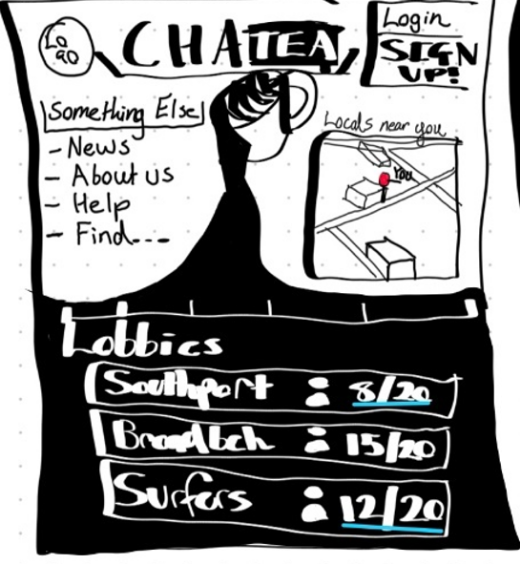 Logo
CHATEA
Login
SIGN
UP!
Something Else
- News
- About us
- Help
- Find---
Locals near you
You
Lobbies
Southport 8/20
Broadbch 15/20
Surfers 12/20